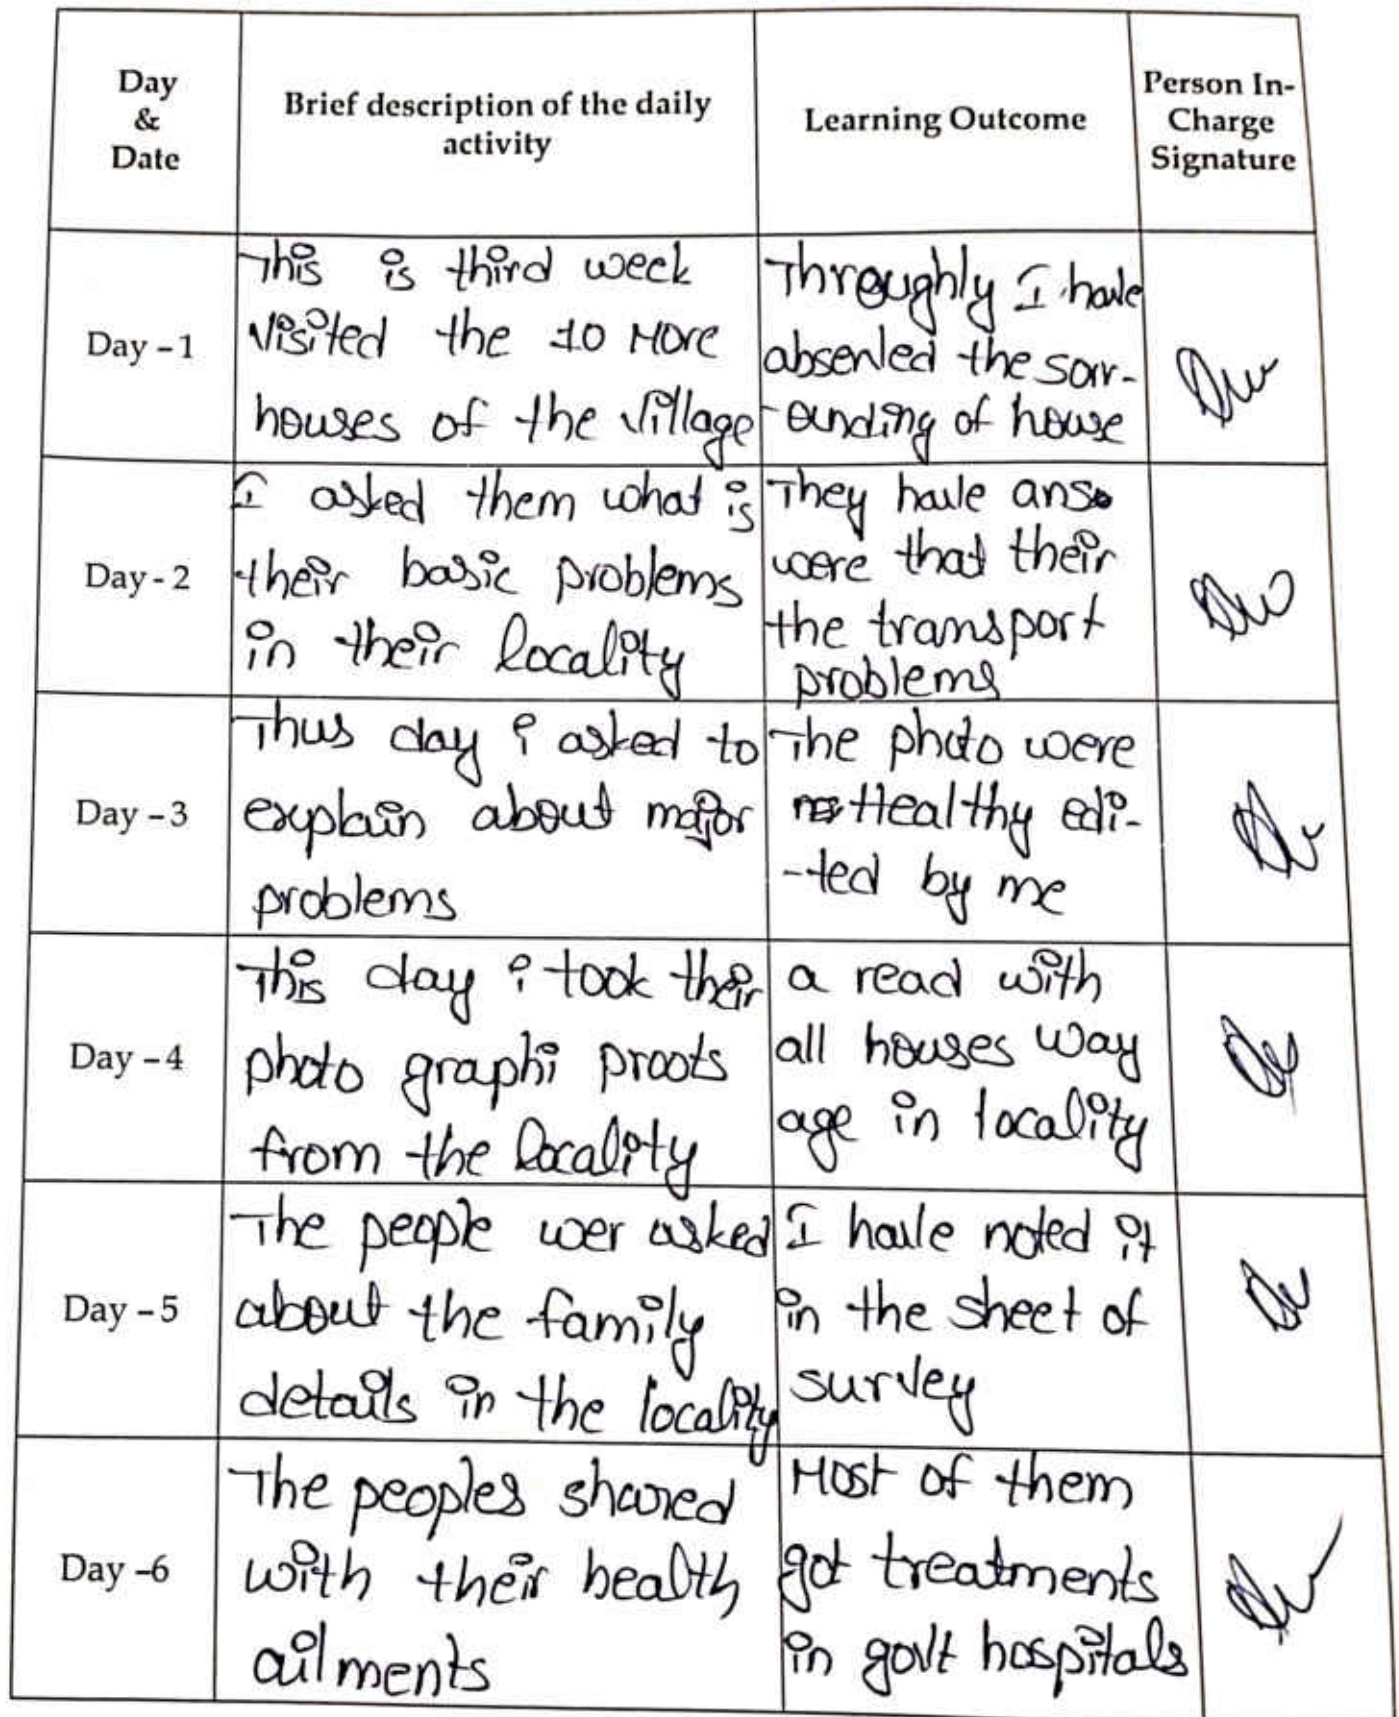 Day
&
Date
Brief description of the daily
activity
Learning Outcome
Person In-
Charge
Signature
Day - 1
This is third week
visited the 10 More
houses of the village
Throughly I have
absenled the sorr-
-ounding of house
Day - 2
I asked them what is
their basic problems
in their locality
They have ans
were that their
the transport
problems
Day - 3
Thus day i asked to
explain about major
problems
The photo were
Healthy edi-
-ted by me
Day - 4
This day i took their
photo graphi proots
from the locality
a read with
all houses way
age in locality
Day - 5
The people wer asked
about the family
details in the locality
I have noted it
in the sheet of
survey
Day -6
The peoples shared
with their health
ailments
Most of them
got treatments
in govt hospitals